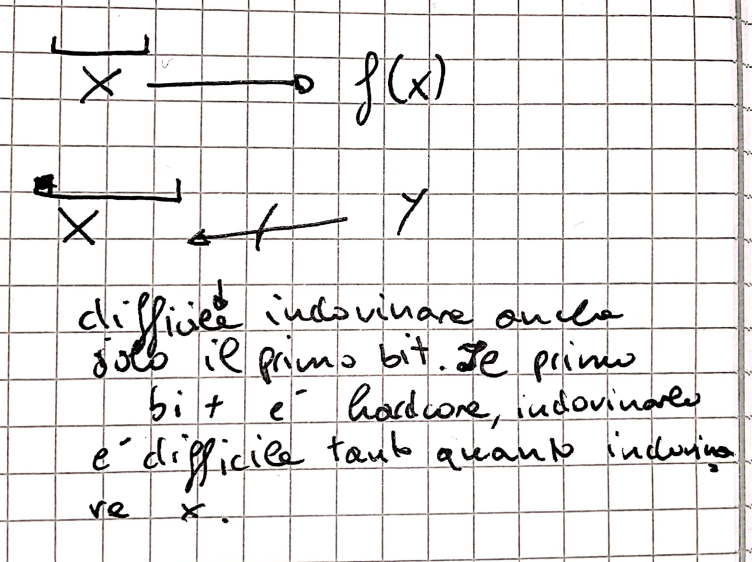 x f(x)
x y
difficile indovinare anche
solo il primo bit. Se primo
bit e' hardcore, indovinarlo
e' difficile tanto quanto indovina
re x.